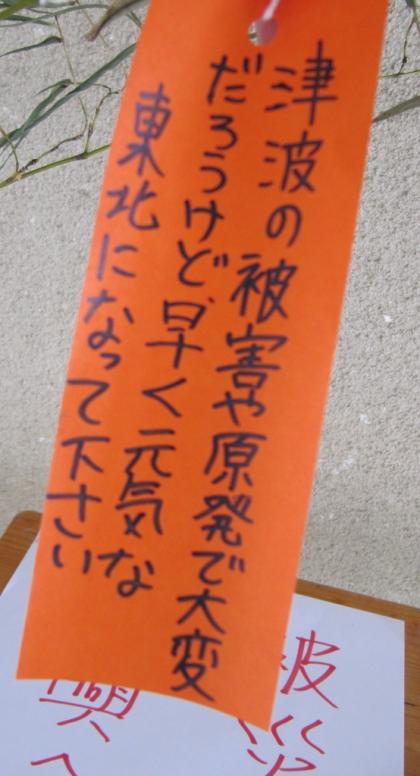 津波の被害や原発で大変
だろうけど早く元気な
東北になって下さい
被災